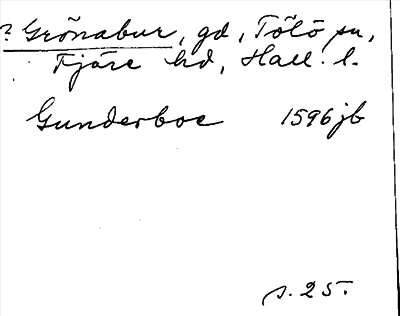 ? Grönabur, gd, Tölö sn,
Fjäre hd, Hall. l.
Gunderboe 1596 jb
s. 25.